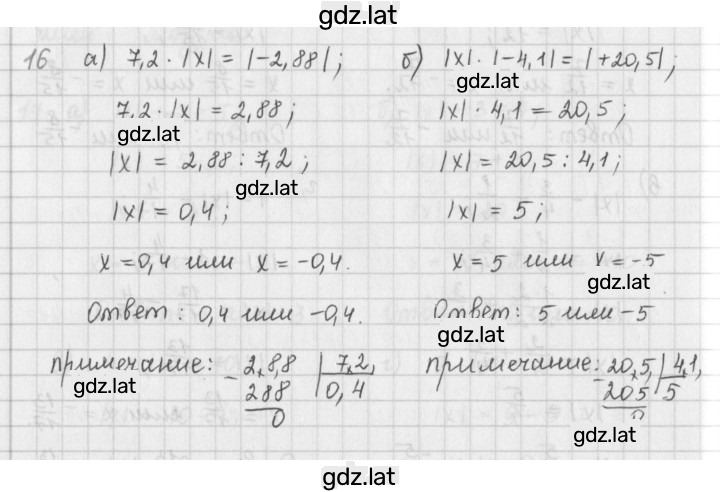 gdz.lat
16 а) 7,2 · |x| = |-2,88|;
7,2 · |x| = 2,88;
gdz.lat
|x| = 2,88 : 7,2;
gdz.lat
|x| = 0,4;
x = 0,4 или x = -0,4.
Ответ: 0,4 или -0,4.
примечание: - 2,8,8 | 7,2,
gdz.lat
288 0,4
0
б) |x| · |-4,1| = |+20,5|;
gdz.lat
|x| · 4,1 = 20,5;
|x| = 20,5 : 4,1;
|x| = 5;
x = 5 или x = -5
gdz.lat
Ответ: 5 или -5
gdz.lat
примечание: - 20,5, | 4,1,
205 5
0
gdz.lat
gdz.lat